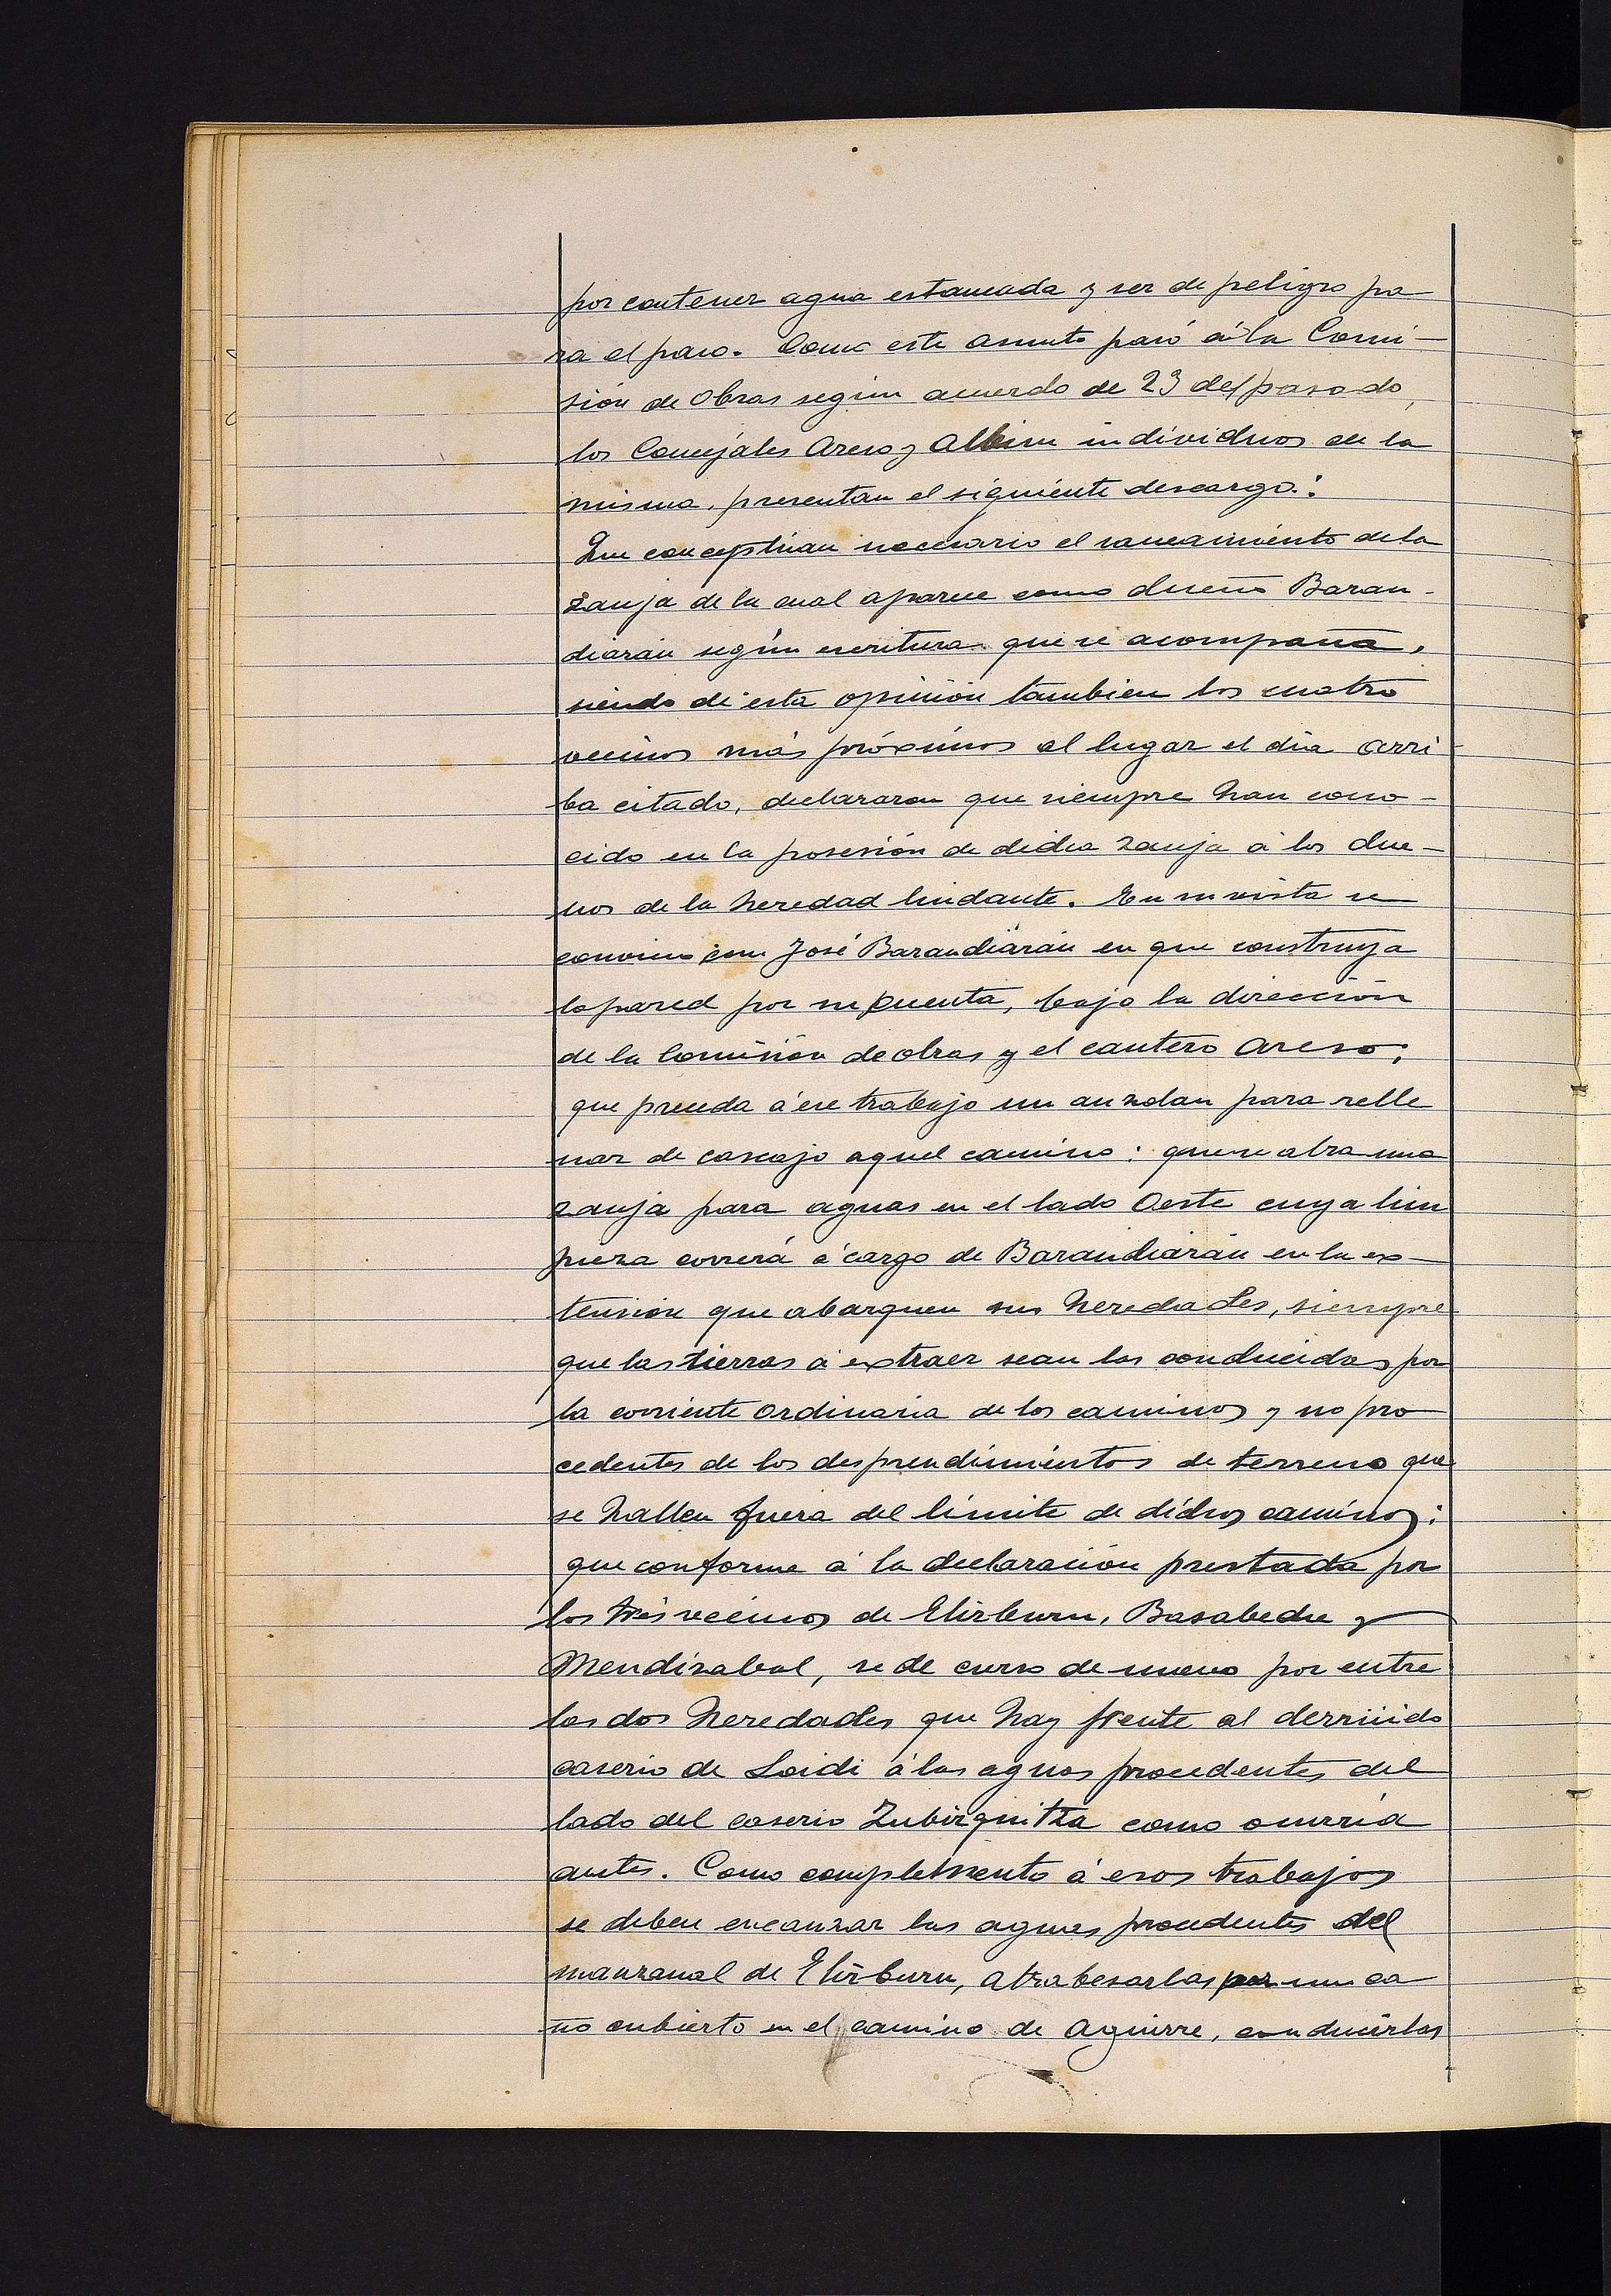 por contener agua estancada y ser de peligro pa
ra el paso. Como este asunto pasó á la Comi-
sión de Obras según acuerdo de 23 del pasado,
los Concejales Areso y Albisu individuos de la
misma, presentan el siguiente descargo:
Que conceptúan necesario el saneamiento de la
zanja de la cual aparece como dueño Baran-
diarán según escritura que se acompaña,
siendo de esta opinión tambien los cuatro
vecinos más próximos al lugar el dia arri
ba citado, declararon que siempre han cono-
cido en la posesión de dicha zanja á los due-
ños de la heredad lindante. En su vista se
convino con José Barandiarán en que construya
la pared por su cuenta, bajo la dirección
de la Comisión de obras y el cantero Areso;
que preceda á ese trabajo un auzolan para relle
nar de cascajo aquel camino: que se abra una
zanja para aguas en el lado Oeste cuya lim
pieza correrá á cargo de Barandiarán en la ex-
tensión que abarquen sus heredades, siempre
que las tierras á extraer sean las conducidas por
la corriente ordinaria de los caminos y no pro
cedentes de los desprendimientos de terreno que
se hallen fuera del límite de dichos caminos:
que conforme á la declaración prestada por
los tres vecinos de Elizburu, Basabedre y
Mendizabal, se de curso de nuevo por entre
las dos heredades que hay frente al derruido
caserio de Loidi á las aguas procedentes del
lado del caserio Zubizquitza como ocurría
antes. Como complemento á esos trabajos
se deben encauzar las aguas procedentes del
manzanal de Elizburu, atrabesarlas por un ca
ño cubierto en el camino de Aguirre, conducirlas